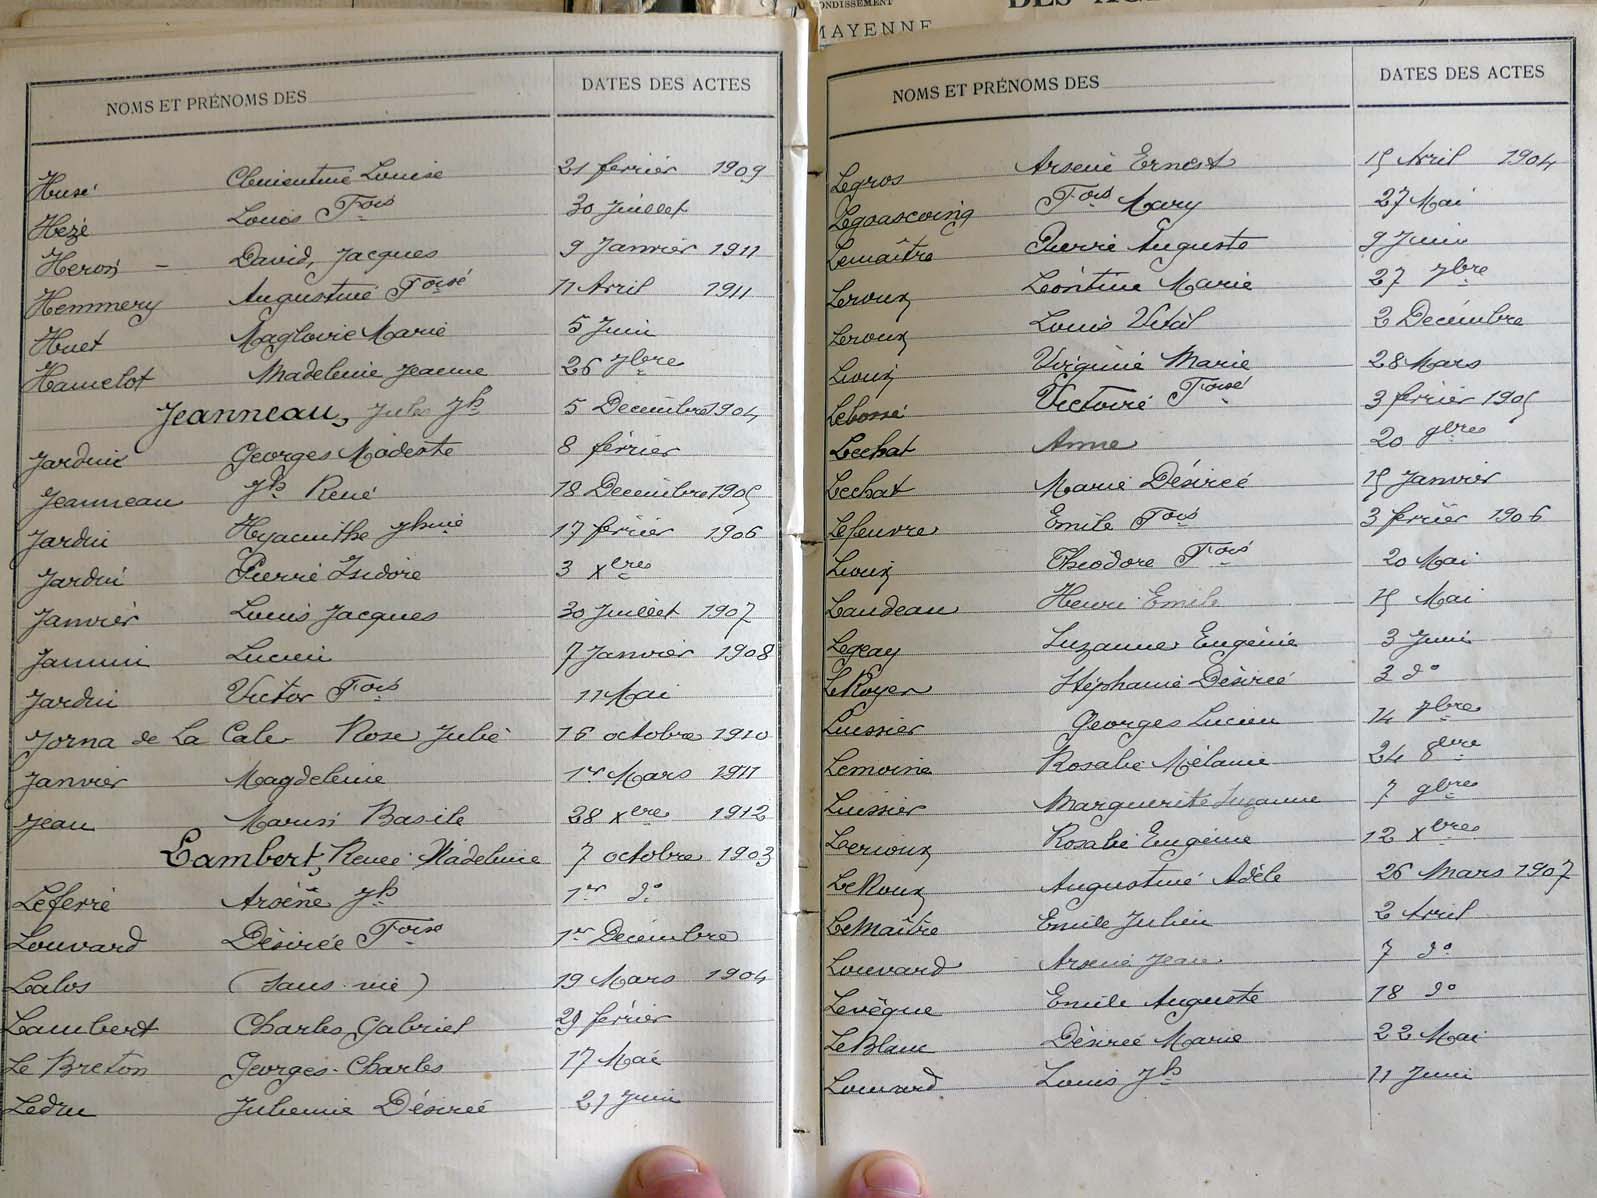 NDISSEMENT
MAYENNE
NOMS ET PRÉNOMS DES
DATES DES ACTES
Husé Clementine Louise 21 février 1909
Hézé Louis Fois 30 Juillet
Heron - David, Jacques 9 Janvier 1911
Hemmery Augustine Foise 11 Avril 1911
Huet Magloire Marie 5 Juin
Hamelot Madeleine Jeanne 26 7bre
Jeanneau, Jules Jh 5 Decembre 1904
Jardin Georges Modeste 8 février
Jeanneau Jh René 18 Decembre 1905
Jardin Hyacinthe 17 février 1906
Jardin Pierre Isidore 3 Xbre
Janvier Louis Jacques 30 Juillet 1907
Jamin Lucien 7 Janvier 1908
Jardin Victor Fois 11 Mai
Jorna de La Cale Rose Julie 16 octobre 1910
Janvier Magdeleine 1er Mars 1911
Jean Marie Basile 28 Xbre 1912
Lambert, Renée Madeleine 7 octobre 1903
Leferré Arsène Jh 1er do
Louvard Désirée Foise 1er Decembre
Lalos (sans vie) 19 Mars 1904
Lambert Charles Gabriel 29 février
Le Breton Georges Charles 17 Mai
Ledru Julienne Désirée 21 Juin
NOMS ET PRÉNOMS DES
DATES DES ACTES
Legros Arsene Ernest 15 Avril 1904
Legoascoing Fois Mary 27 Mai
Lemaître Pierre Auguste 9 Juin
Leroux Léontine Marie 27 7bre
Leroux Louis Vital 2 Decembre
Lioux Virginie Marie 28 Mars
Lebossé Victoire Foise 3 février 1905
Lechat Anne 20 9bre
Lechat Marie Désirée 15 Janvier
Lefeuvre Emile Fois 3 février 1906
Lioux Théodore Fois 20 Mai
Landeau Henri Emile 15 Mai
Legeay Suzanne Eugénie 3 Juin
Le Royer Stéphanie Désirée 3 do
Luissier Georges Lucien 14 7bre
Lemoine Rosalie Mélanie 24 8bre
Luissier Marguerite Suzanne 7 9bre
Lerioux Rosalie Eugénie 12 Xbre
Le Roux Augustine Adèle 26 Mars 1907
Le Maître Emile Julien 2 Avril
Louvard Arsene Jean 7 do
Levêque Emile Auguste 18 do
Le Blanc Désirée Marie 22 Mai
Louvard Louis Jh 11 Juin